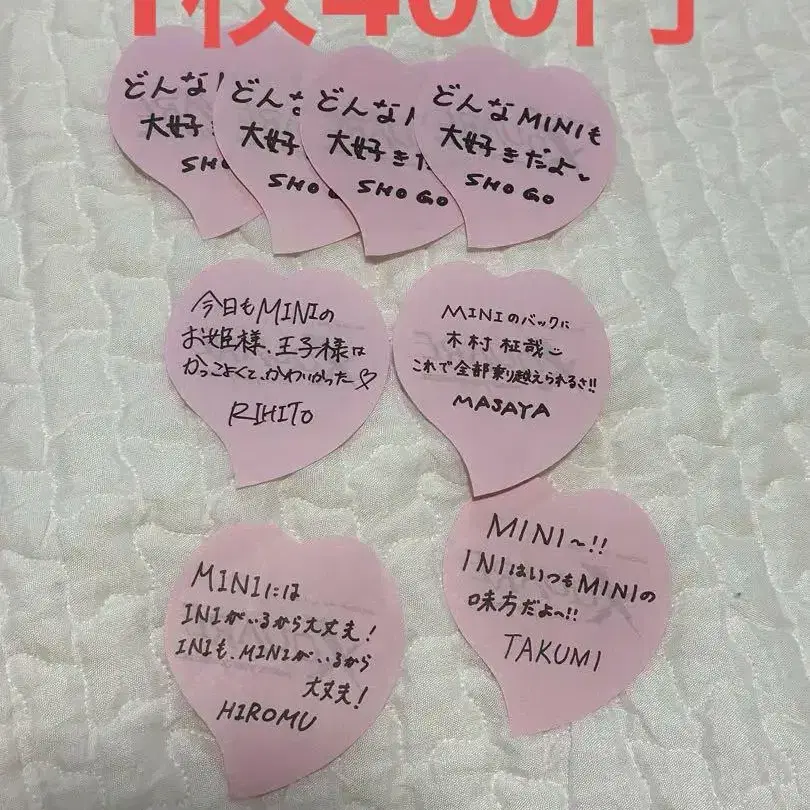 1枚400円
どんな
大好
SHO
どんな
大好
SHO
どんな
大好きだ
SHOGO
どんなMINIも
大好きだよ
SHOGO
今日もMINIの
お姫様、王子様は
かっこよくて、かわいかった♡
RIHITO
MINIのバックに
木村柾哉
これで全部乗り越えられるさ!!
MASAYA
MINI〜!!
INIはいつもMINIの
味方だよ〜!!
TAKUMI
MINIには
INIがいるから大丈夫!
INIも、MINIがいるから
大丈夫!
HIROMU